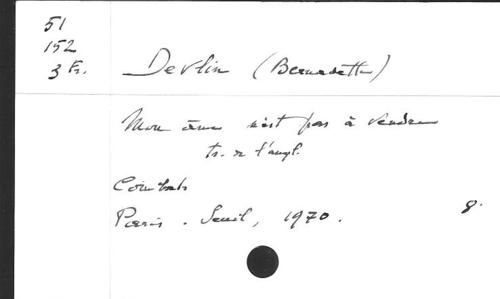 51
152
3 Fr.
Devlin (Bernadette)
Mon âme n'est pas à vendre
tr. de l'angl.
Combats
Paris. Seuil, 1970.
8°